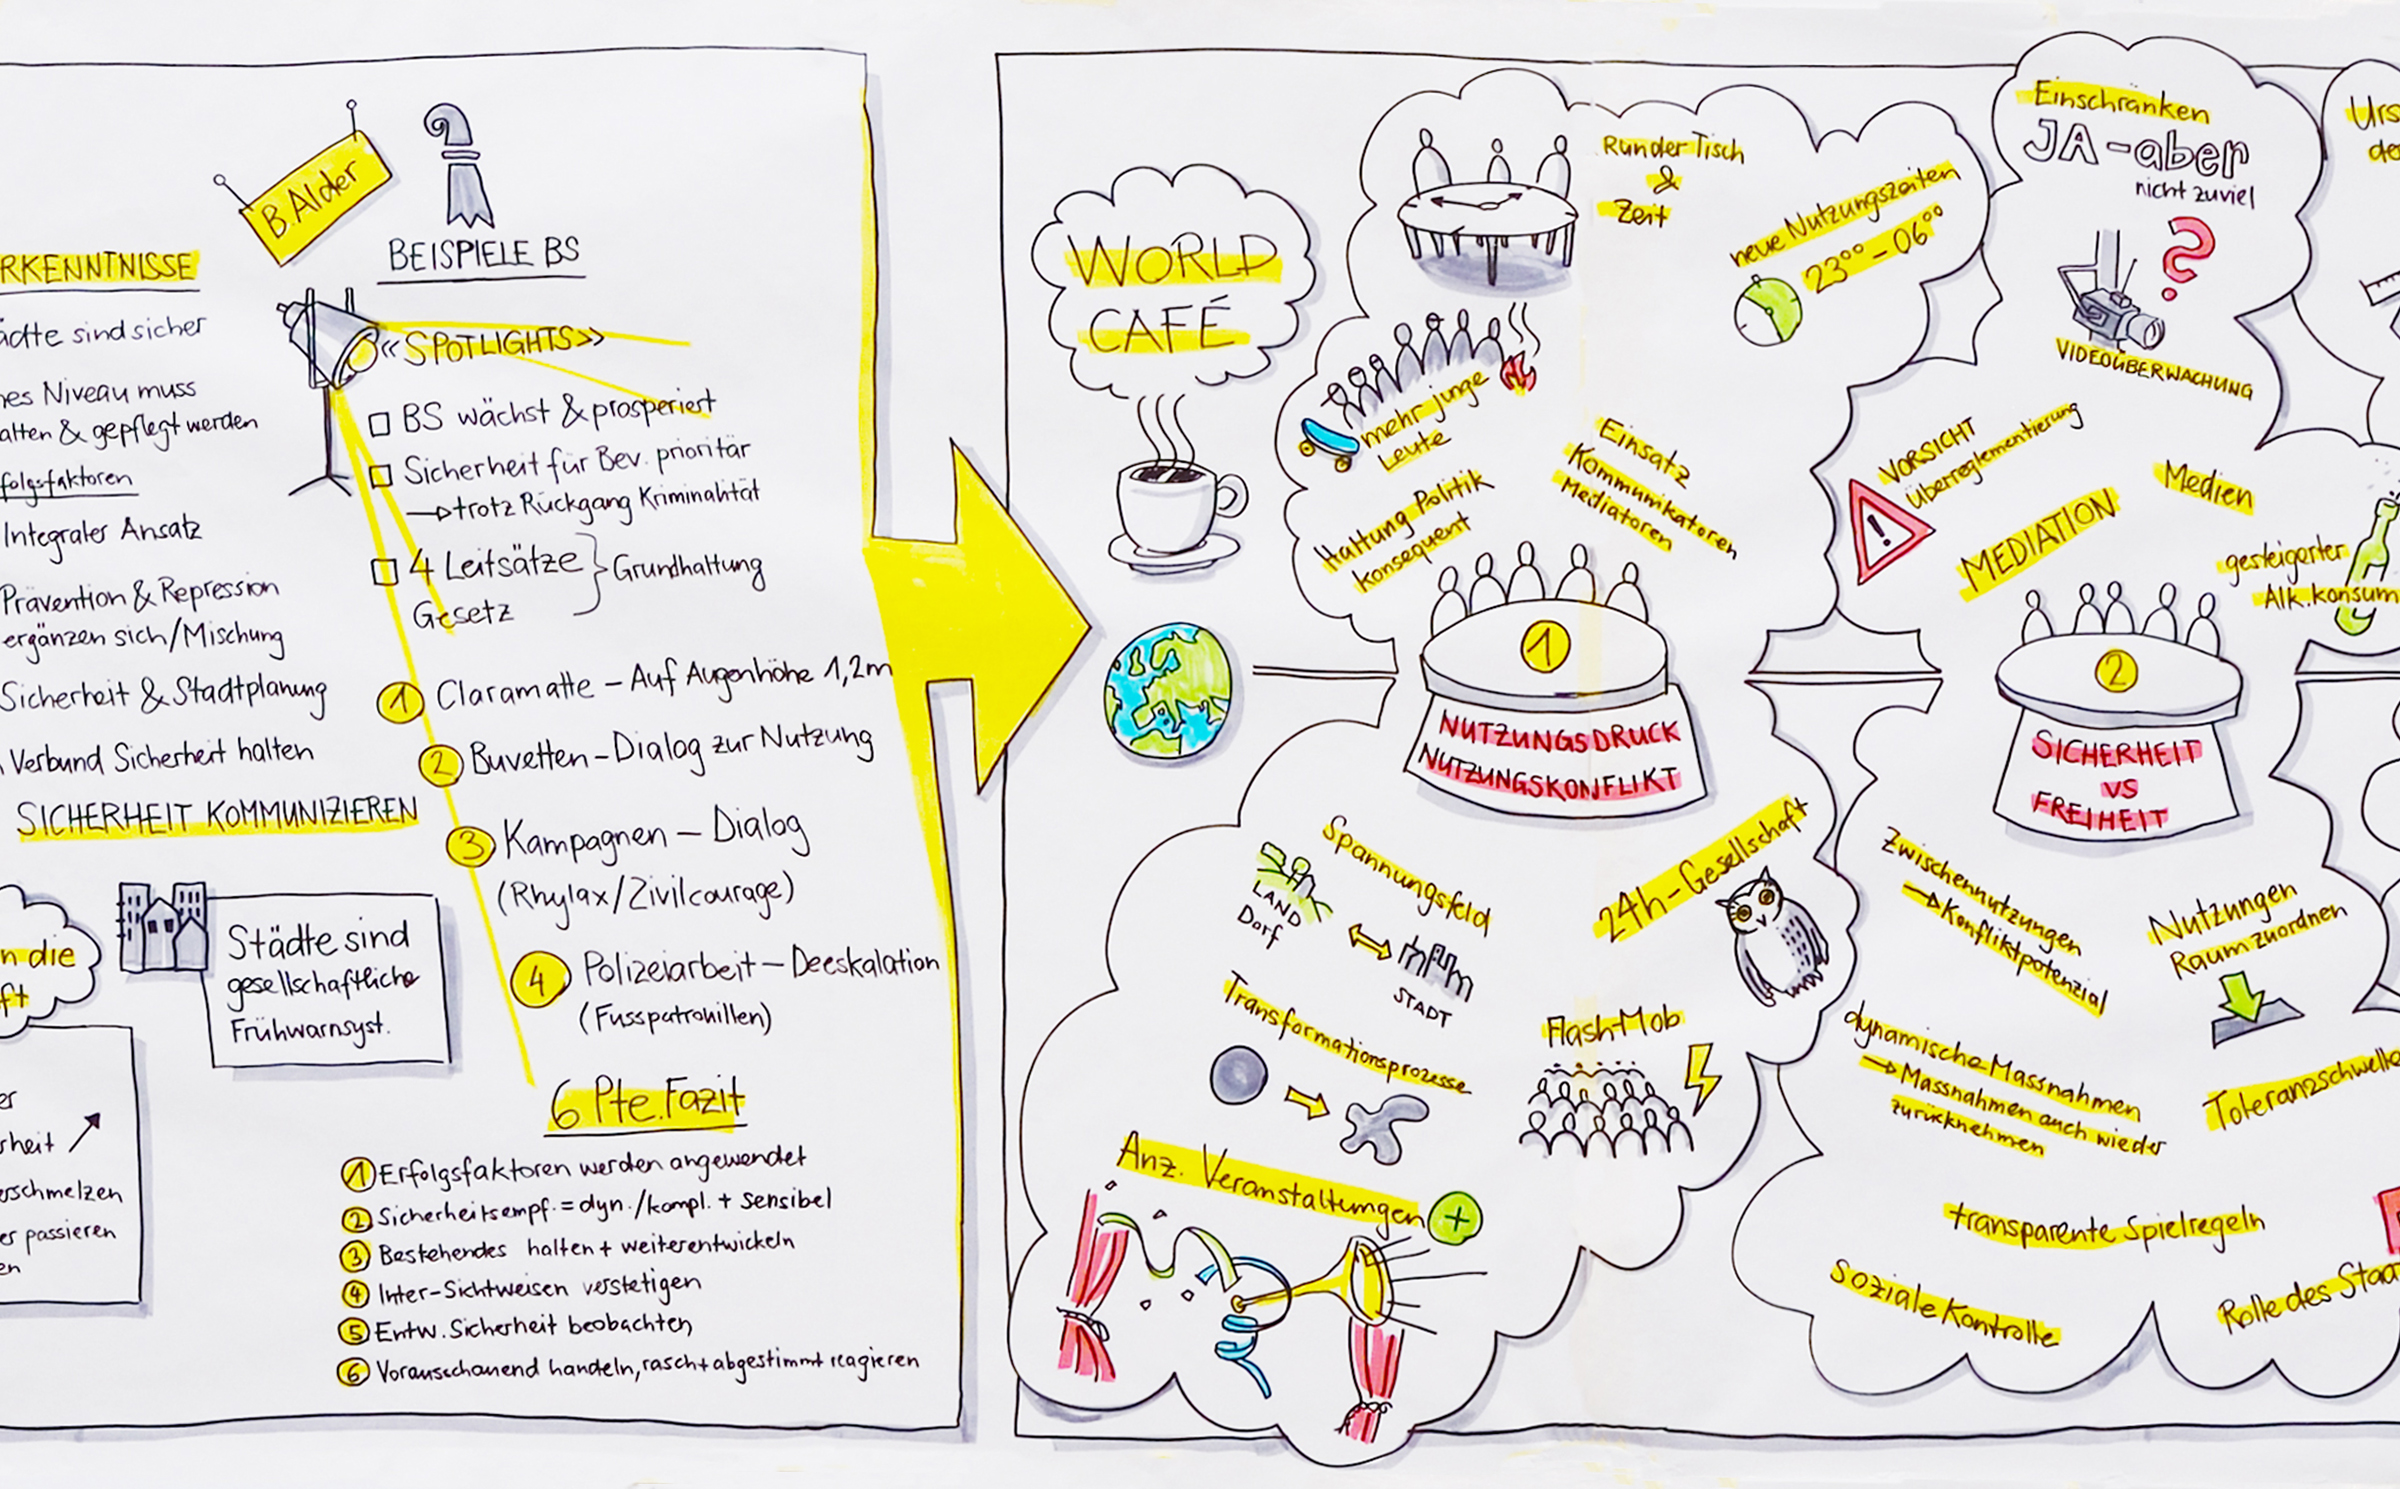 B. Alder
BEISPIELE BS
RKENNTNISSE
ädte sind sicher
hes Niveau muss
alten & gepflegt werden
folgsfaktoren
Integraler Ansatz
Prävention & Repression
ergänzen sich/Mischung
Sicherheit & Stadtplanung
Verbund Sicherheit halten
SICHERHEIT KOMMUNIZIEREN
n die
ft
Städte sind
gesellschaftliche
Frühwarnsyst.
er
rheit
erschmelzen
er passieren
en
«SPOTLIGHTS»
BS wächst & prosperiert
Sicherheit für Bev. prioritär
→ trotz Rückgang Kriminalität
4 Leitsätze } Grundhaltung
Gesetz
1 Claramatte – Auf Augenhöhe 1,2m
2 Buvetten – Dialog zur Nutzung
3 Kampagnen – Dialog
(Rhylax/Zivilcourage)
4 Polizeiarbeit – Deeskalation
(Fusspatrouillen)
6 Pte. Fazit
1 Erfolgsfaktoren werden angewendet
2 Sicherheitsempf. = dyn./kompl. + sensibel
3 Bestehendes halten + weiterentwickeln
4 Inter-Sichtweisen verstetigen
5 Entw. Sicherheit beobachten
6 Vorausschauend handeln, rasch + abgestimmt reagieren
WORLD
CAFÉ
Runder Tisch
&
Zeit
neue Nutzungszeiten
23⁰⁰ – 06⁰⁰
mehr junge
Leute
Haltung Politik
konsequent
Einsatz
Kommunikatoren
Mediatoren
1
NUTZUNGSDRUCK
NUTZUNGSKONFLIKT
Spannungsfeld
LAND
Dorf
STADT
24h-Gesellschaft
Transformationsprozesse
Flash-Mob
Anz. Veranstaltungen +
Einschränken
JA – aber
nicht zuviel
?
VIDEOÜBERWACHUNG
VORSICHT
Überreglementierung
!
MEDIATION
Medien
gesteigerter
Alk.konsum
2
SICHERHEIT
VS
FREIHEIT
Zwischennutzungen
→ Konfliktpotenzial
Nutzungen
Raum zuordnen
dynamische Massnahmen
→ Massnahmen auch wieder
zurücknehmen
Toleranzschwelle
transparente Spielregeln
Soziale Kontrolle
Rolle des Staa
Urs
de